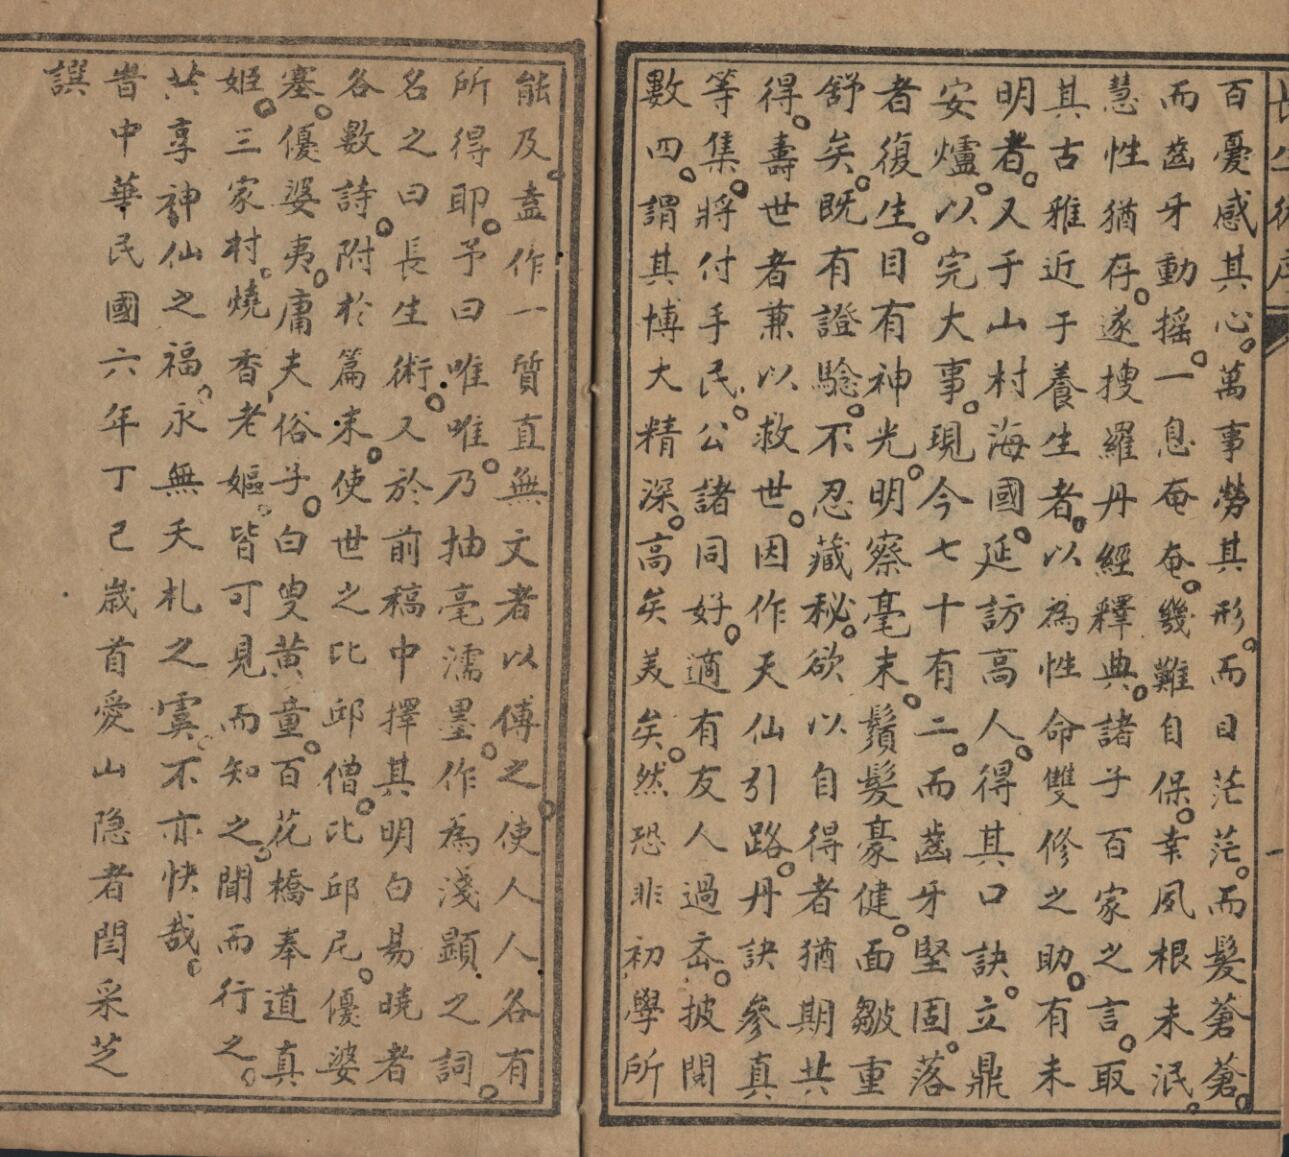 百憂感其心萬事勞其形而目茫茫而髮蒼蒼
而齒牙動搖一息奄奄幾難自保幸夙根未泯
慧性猶存遂搜羅丹經釋典諸子百家之言取
其古雅近于養生者以為性命雙修之助有未
明者又于山村海國延訪高人得其口訣立鼎
安爐以完大事現今七十有二而齒牙堅固落
者復生目有神光明察毫末鬚髮豪健面皺重
舒矣既有證驗不忍藏秘欲以自得者猶期共
得壽世者兼以救世因作天仙引路丹訣參真
等集將付手民公諸同好適有友人過岙披閱
數四謂其博大精深高矣美矣然恐非初學所
能及盍作一質直無文者以傳之使人人各有
所得耶予曰唯唯乃抽毫濡墨作為淺顯之詞
名之曰長生術又於前稿中擇其明白易曉者
各數詩附於篇末使世之比邱僧比邱尼優婆
塞優婆夷庸夫俗子白叟黃童百花橋奉道真
姬三家村燒香老嫗皆可見而知之聞而行之
共享神仙之福永無夭札之虞不亦快哉
旹中華民國六年丁巳歲首愛山隐者閆采芝
譔